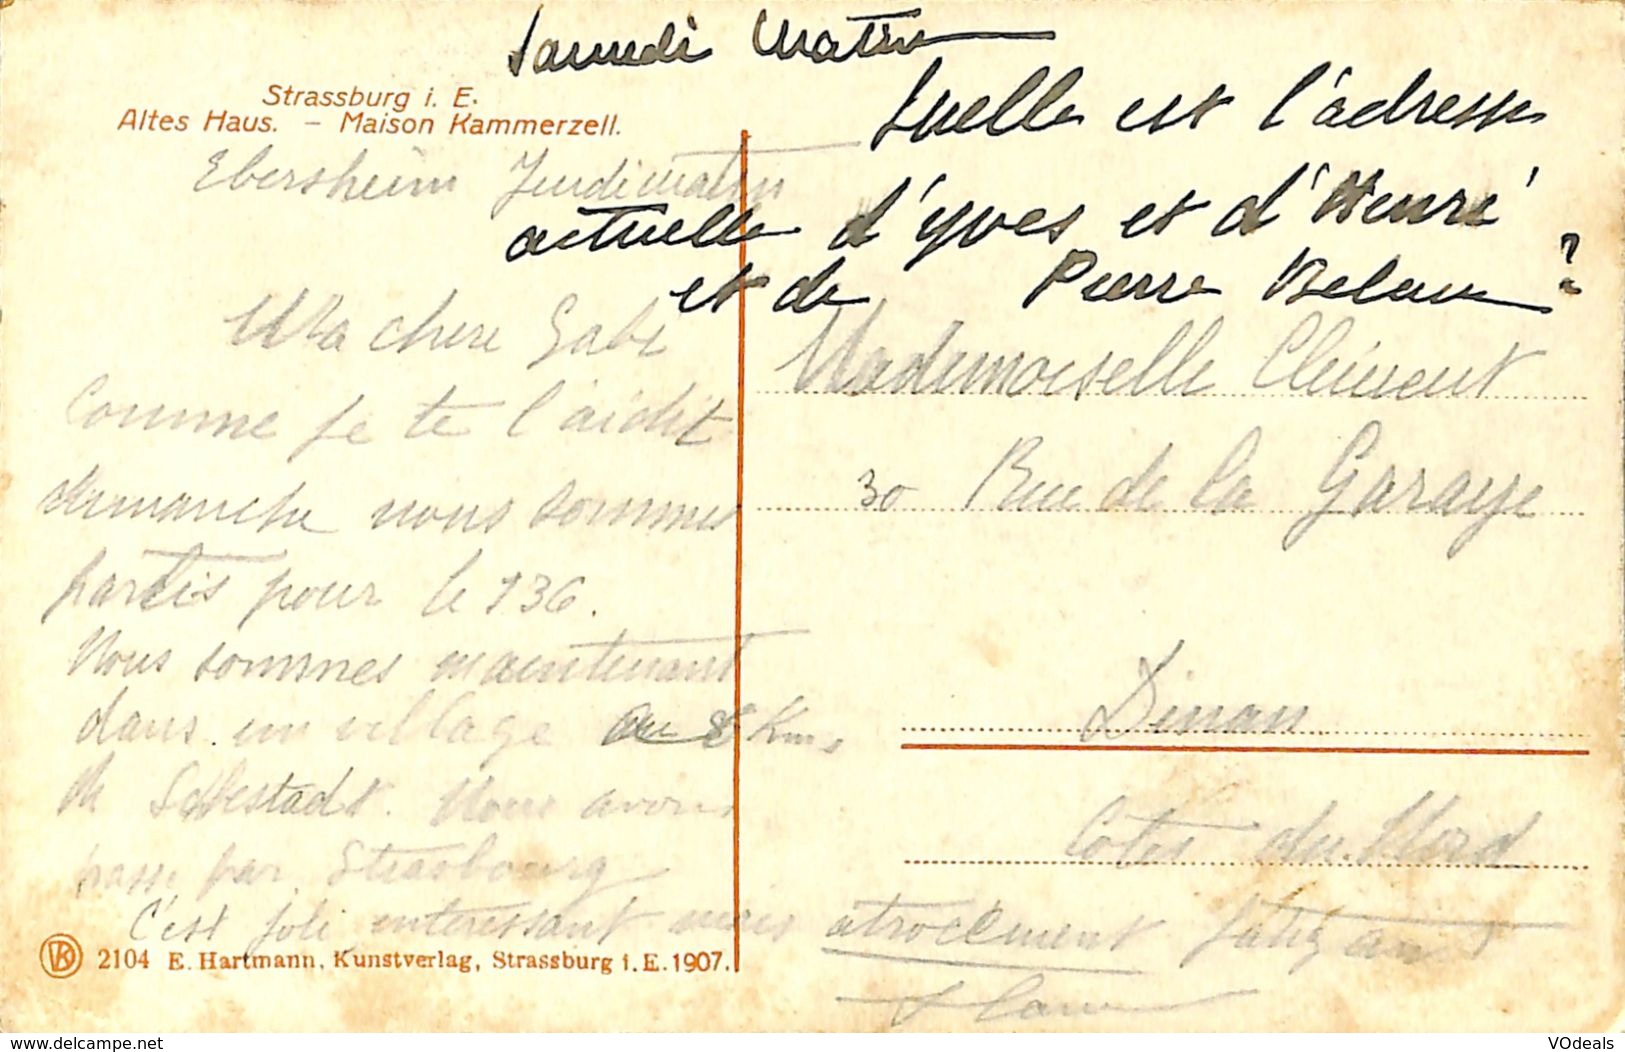 Samedi Matin
Quelle est l'adresse
actuelle d'Yves et d'Henri
et de Pierre ?
Strassburg i. E.
Altes Haus. – Maison Kammerzell.
Ebersheim Jeudi matin
Ma chere Gabi
Comme je te l'ai dit
dimanche nous sommes
partis pour le 136.
Nous sommes maintenant
dans un village au 8 Kms
de Schlestadt. Nous avons
passé par Strasbourg
C'est joli interessant mais atrocement fatigant
Mademoiselle Clément
30 Rue de la Garaye
Dinan
Côtes du Nord
2104 E. Hartmann, Kunstverlag, Strassburg i. E. 1907.
delcampe.net
VOdeals